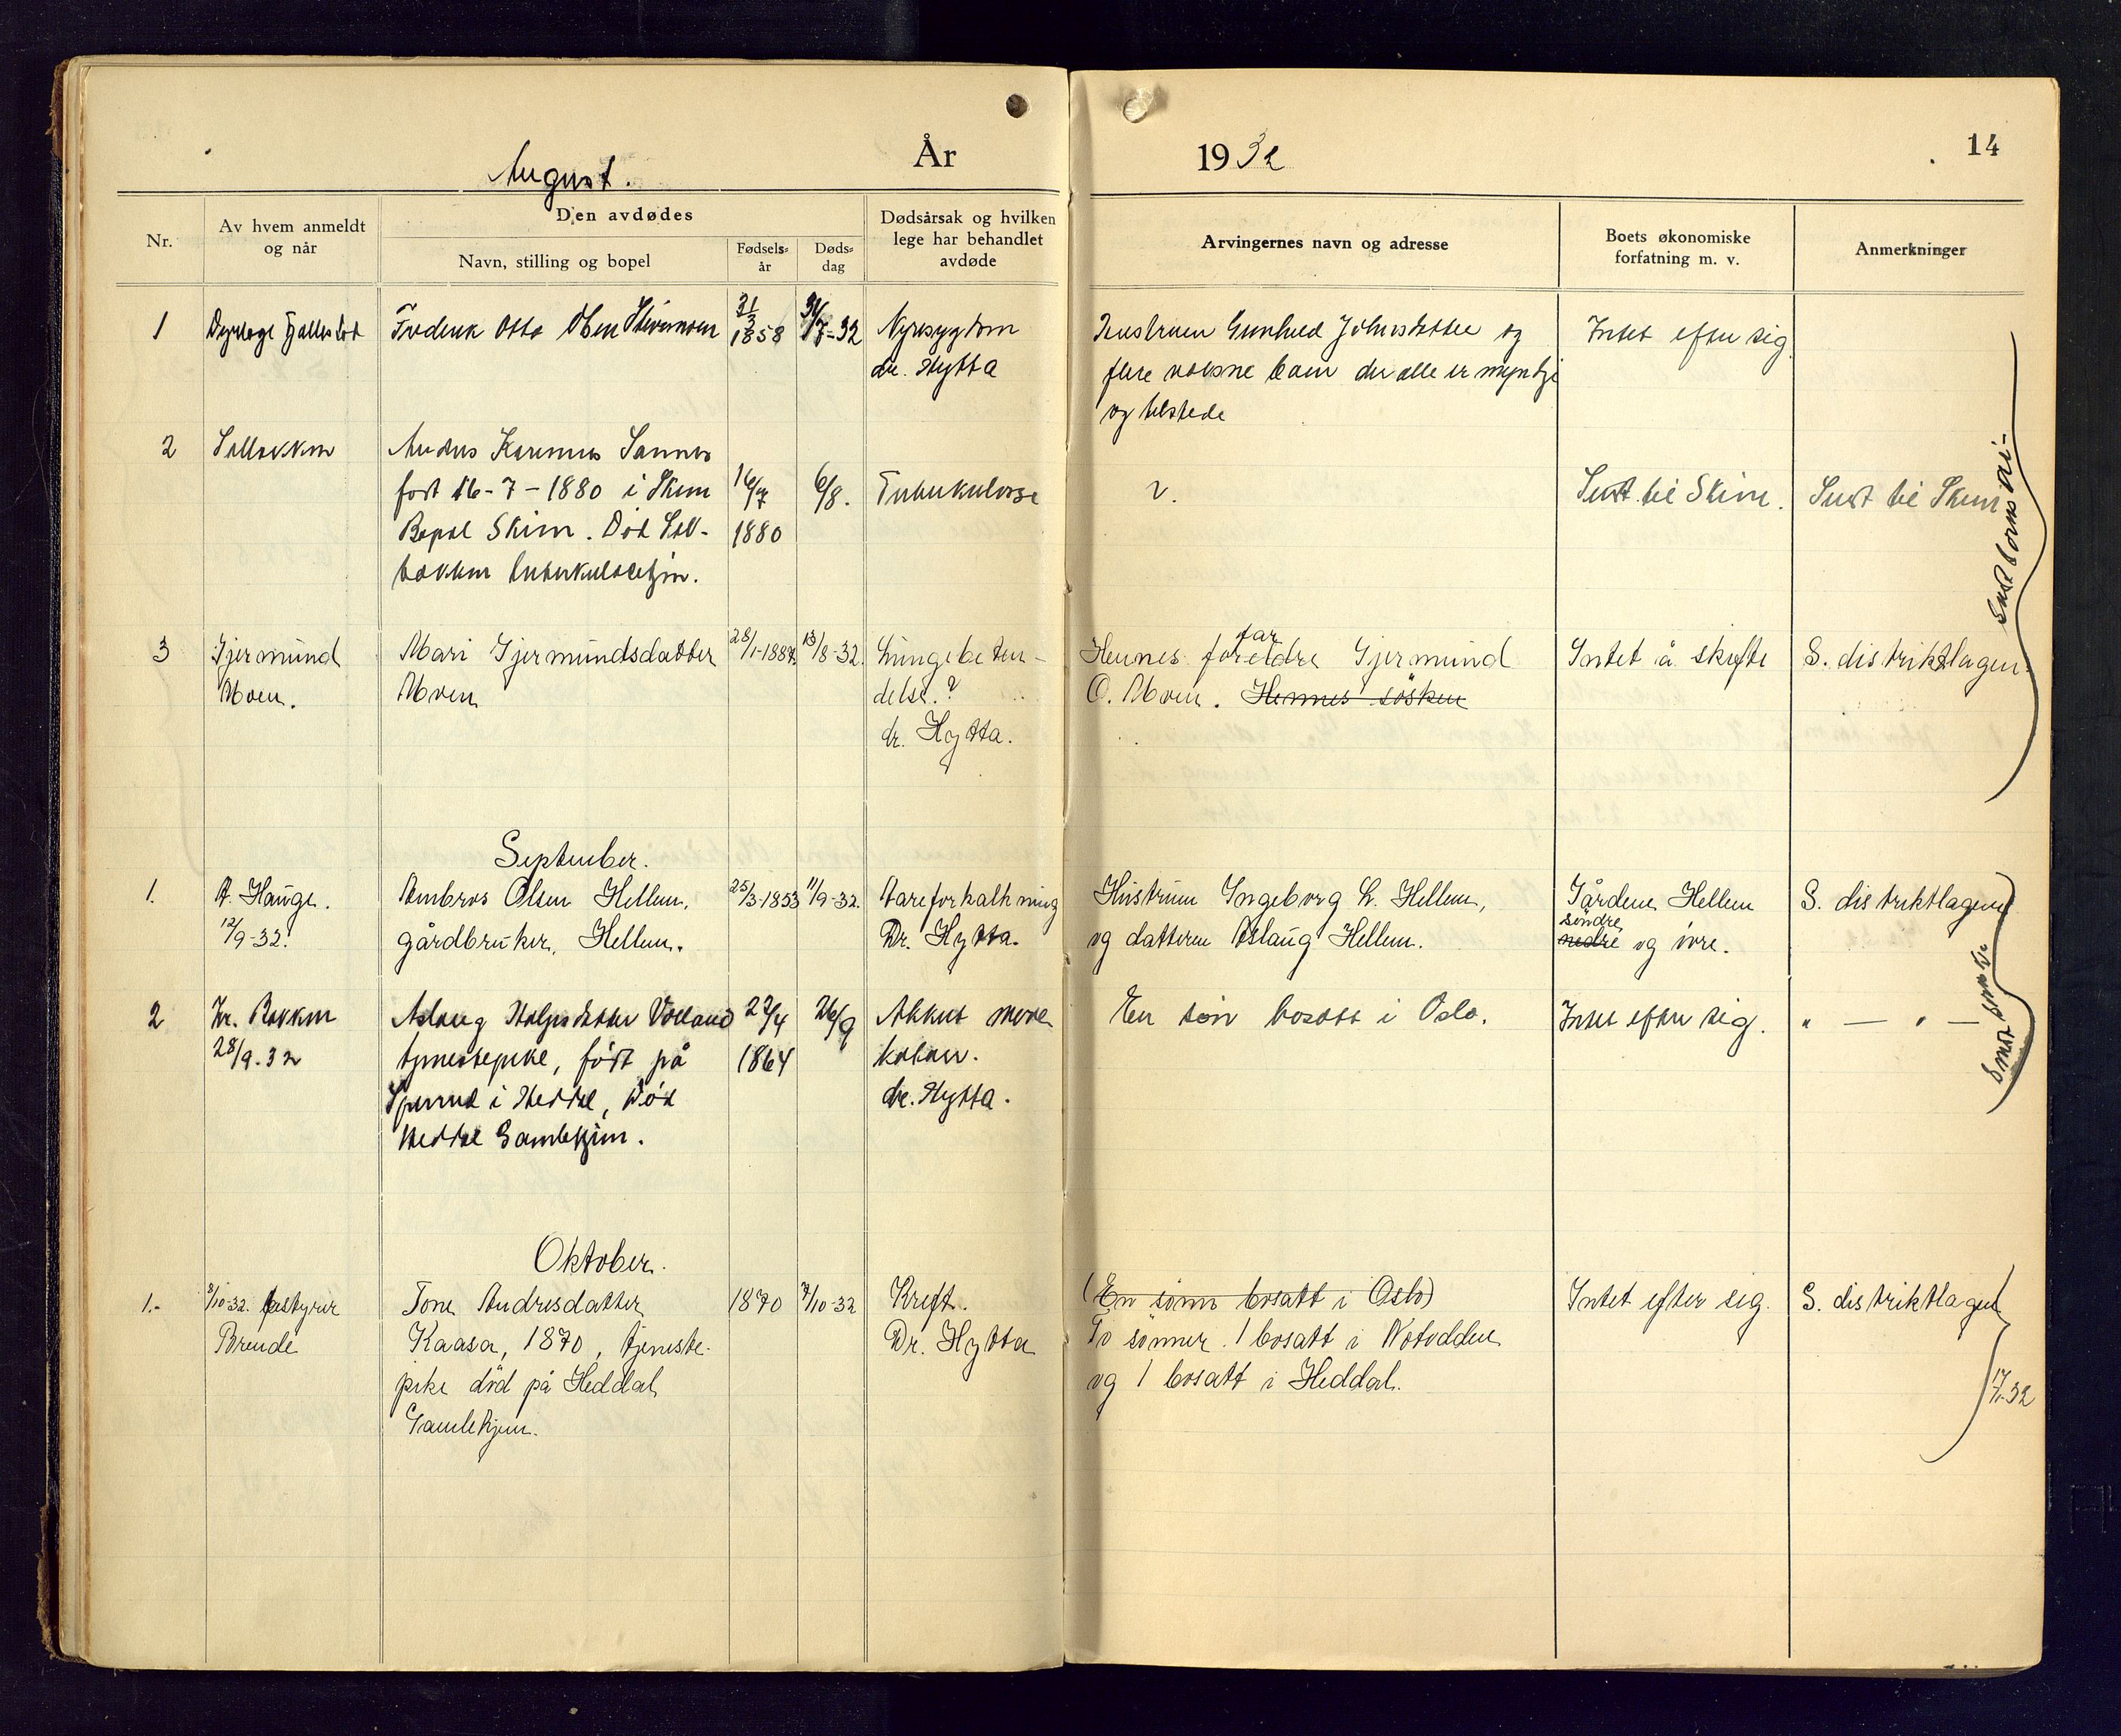 År
1932
14
August.
Nr.
Av hvem anmeldt
og når
Den avdødes
Navn, stilling og bopel
Fødsels-
år
Døds-
dag
Dødsårsak og hvilken
lege har behandlet
avdøde
Arvingernes navn og adresse
Boets økonomiske
forfatning m. v.
Anmerkninger
1
Otto
3/3
1858
31/7-32
Nyresygdom
dr. Hytta
Gunhild Johnsdatter og
flere voksne barn der alle er myndige
og tilstede
Intet efter sig.
2
født 16-7-1880 i Skien
Bopæl Skien. Død Sol-
bakken tuberkulosehjem.
16/7
1880
6/8.
Tuberkulose
?.
Sendt til Skien.
Sendt til Skien
3
Gjermund
Moen.
Mari Gjermundsdatter
Moen
28/1-1887.
13/8-32.
Lungebeten-
delse.?
dr. Hytta.
far
Hennes foreldre Gjermund
O. Moen. Hennes søsken
Intet å skifte
S. distriktlagen.
September.
1.
A. Hauge.
12/9-32.
Ambros Olsen Hellem,
gårdbruker, Hellem.
25/3-1853
11/9-32.
Åreforkalkning
Dr. Hytta.
Hustrum Ingeborg L. Hellem,
og datteren Aslaug Hellem.
Gårdene Hellem
søndre
nedre og øvre.
S. distriktlagen
2
Kr. Bakken
28/9.32
Aslaug
tjenestepike, født på
i Heddal, død
Heddal Gamlehjem.
22/4
1864
26/9
Akkut mave
katarr.
dr. Hytta.
En søn bosatt i Oslo.
Intet efter sig.
" — " —
Oktober.
1.-
8/10-32. bestyrer
Brende
Tone Andresdatter
Kaasa, 1870, tjeneste-
pike død på Heddal
Gamlehjem.
1870
7/10-32
Kreft.
Dr. Hytta
(En sønn bosatt i Oslo)
To sønner. 1 bosatt i Notodden
og 1 bosatt i Heddal.
Intet efter sig.
S. distriktlagen